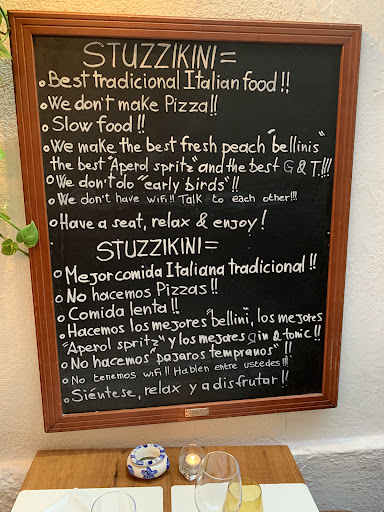 STUZZIKINI=
Best tradicional Italian food!!
We don't make Pizza!!
Slow food!!
We make the best fresh peach "bellinis"
the best "Aperol spritz" and the best G & T.!!!
We don't do "early birds"!!
We don't have wifi!! Talk to each other!!!
Have a seat, relax & enjoy!
STUZZIKINI=
Mejor comida Italiana tradicional!!
No hacemos Pizzas!!
Comida lenta!!
Hacemos los mejores "bellini", los mejores
"Aperol spritz" y los mejores gin & tonic!!
No hacemos "pajaros tempranos"!!
No tenemos wifi!! Hablen entre ustedes!!!
Siéntese, relax y a disfrutar!!